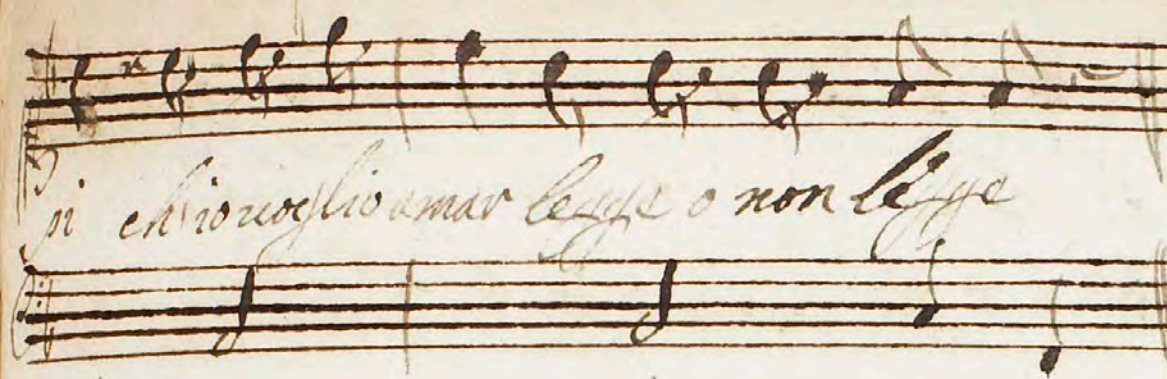 pi ch'io voglio amar legge o non legge